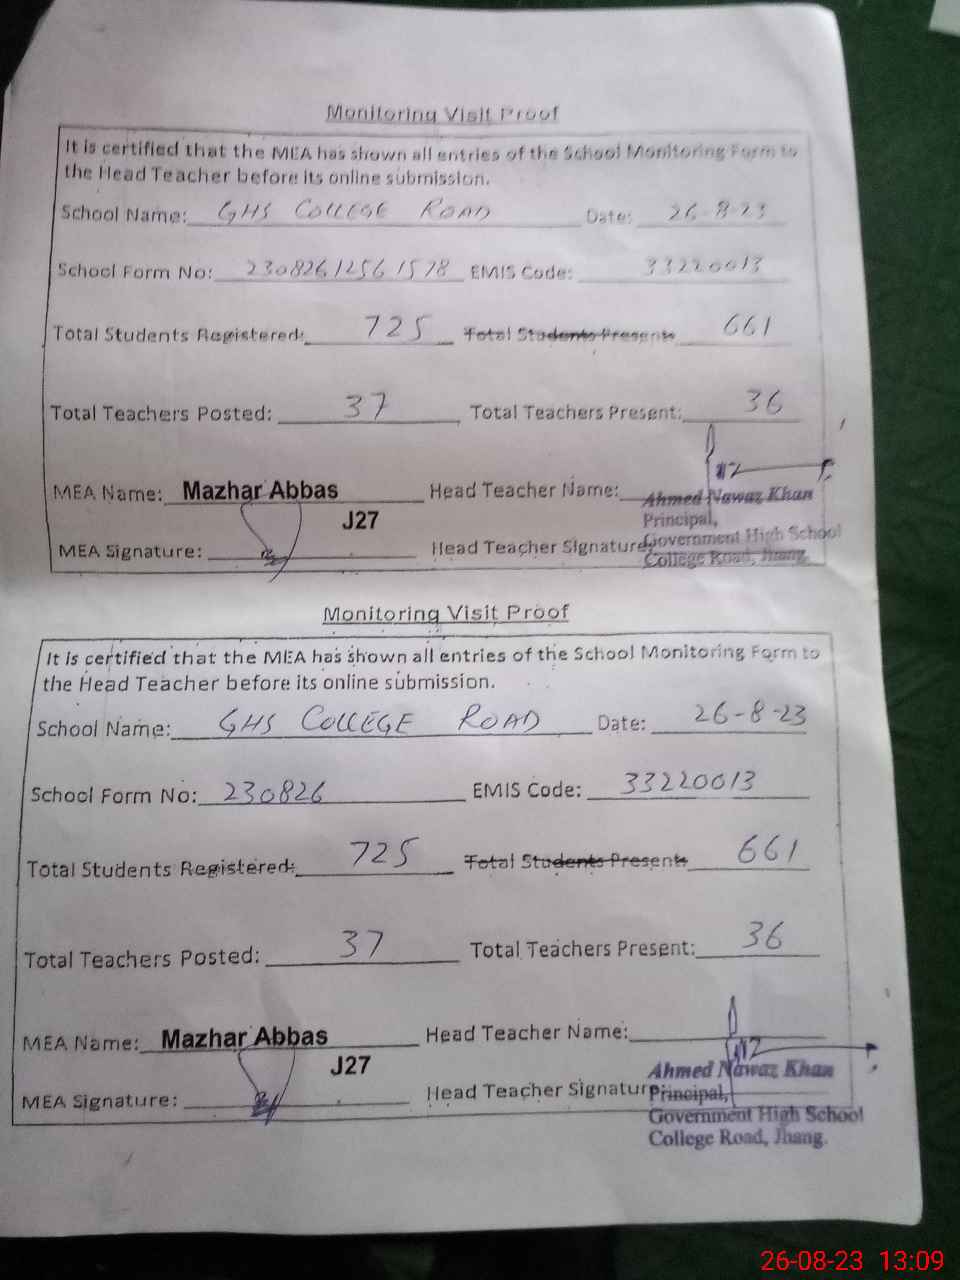 Monitoring Visit Proof
It is certified that the MEA has shown all entries of the School Monitoring Form to
the Head Teacher before its online submission.
School Name: GHS COLLEGE ROAD Date: 26-8-23
School Form No: 23082612561578 EMIS Code: 33220013
Total Students Registered: 725 Total Students Present: 661
Total Teachers Posted: 37 Total Teachers Present: 36
MEA Name: Mazhar Abbas Head Teacher Name:
Ahmed Nawaz Khan
J27
Principal,
MEA Signature: Head Teacher Signature:
Government High School
College Road, Jhang.
Monitoring Visit Proof
It is certified that the MEA has shown all entries of the School Monitoring Form to
the Head Teacher before its online submission.
School Name: GHS COLLEGE ROAD Date: 26-8-23
School Form No: 230826 EMIS Code: 33220013
Total Students Registered: 725 Total Students Present: 661
Total Teachers Posted: 37 Total Teachers Present: 36
MEA Name: Mazhar Abbas Head Teacher Name:
J27
Ahmed Nawaz Khan
MEA Signature: Head Teacher Signature:
Principal,
Government High School
College Road, Jhang.
26-08-23 13:09